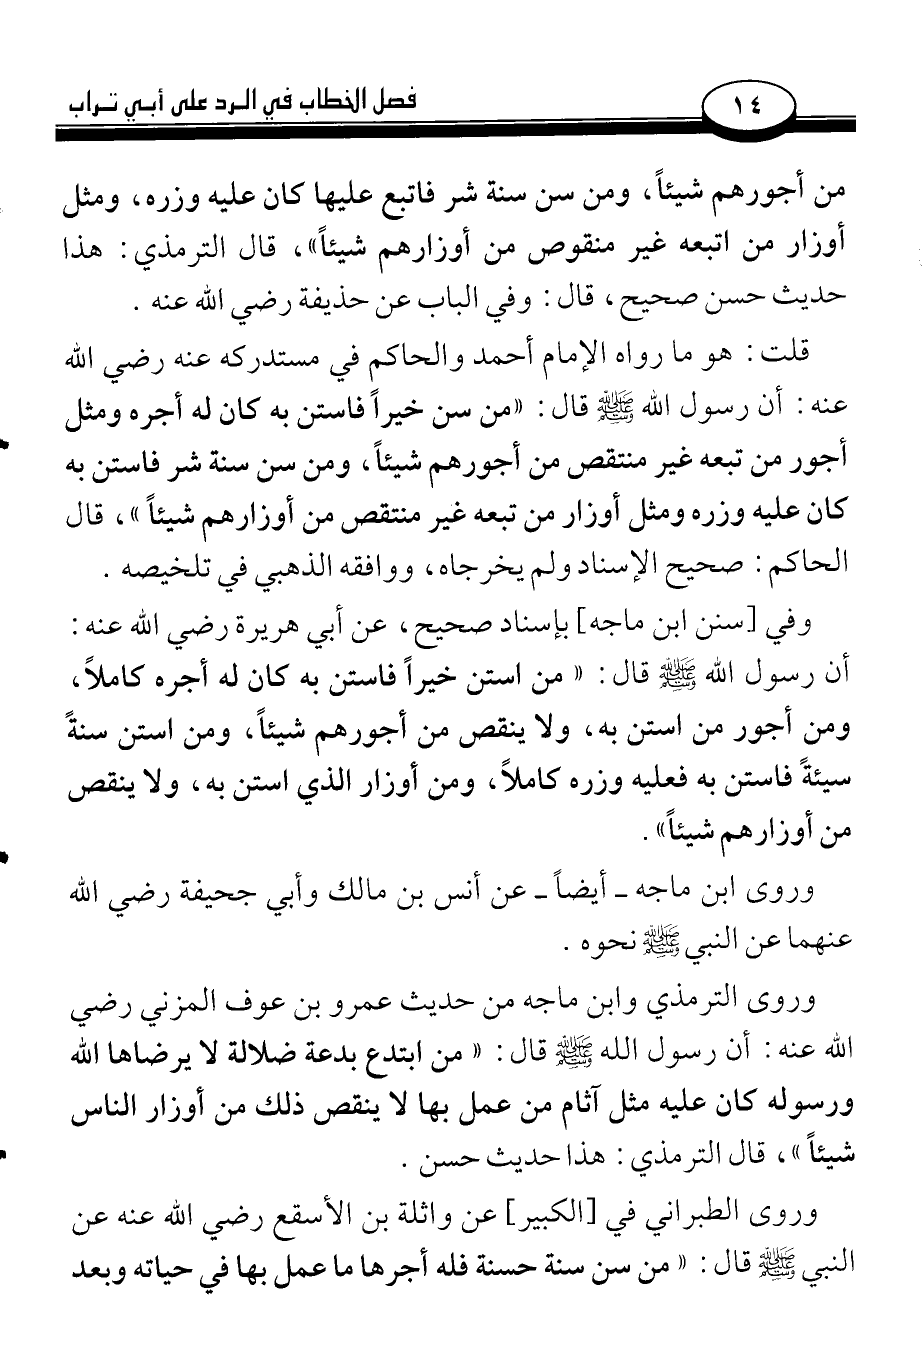 ١٤
فصل الخطاب في الرد على أبي تراب
من أجورهم شيئاً، ومن سن سنة شر فاتبع عليها كان عليه وزره، ومثل
أوزار من اتبعه غير منقوص من أوزارهم شيئاً»، قال الترمذي: هذا
حديث حسن صحيح، قال: وفي الباب عن حذيفة رضي الله عنه .
قلت: هو ما رواه الإمام أحمد والحاكم في مستدركه عنه رضي الله
عنه: أن رسول الله ﷺ قال: «من سن خيراً فاستن به كان له أجره ومثل
أجور من تبعه غير منتقص من أجورهم شيئاً، ومن سن سنة شر فاستن به
كان عليه وزره ومثل أوزار من تبعه غير منتقص من أوزارهم شيئاً»، قال
الحاكم: صحيح الإسناد ولم يخرجاه، ووافقه الذهبي في تلخيصه .
وفي [سنن ابن ماجه] بإسناد صحيح، عن أبي هريرة رضي الله عنه:
أن رسول الله ﷺ قال: « من استن خيراً فاستن به كان له أجره كاملاً،
ومن أجور من استن به، ولا ينقص من أجورهم شيئاً، ومن استن سنةً
سيئةً فاستن به فعليه وزره كاملاً، ومن أوزار الذي استن به، ولا ينقص
من أوزارهم شيئاً» .
وروى ابن ماجه ـ أيضاً ـ عن أنس بن مالك وأبي جحيفة رضي الله
عنهما عن النبي ﷺ نحوه .
وروى الترمذي وابن ماجه من حديث عمرو بن عوف المزني رضي
الله عنه: أن رسول الله ﷺ قال: « من ابتدع بدعة ضلالة لا يرضاها الله
ورسوله كان عليه مثل آثام من عمل بها لا ينقص ذلك من أوزار الناس
شيئاً »، قال الترمذي: هذا حديث حسن .
وروى الطبراني في [الكبير] عن واثلة بن الأسقع رضي الله عنه عن
النبي ﷺ قال: « من سن سنة حسنة فله أجرها ما عمل بها في حياته وبعد